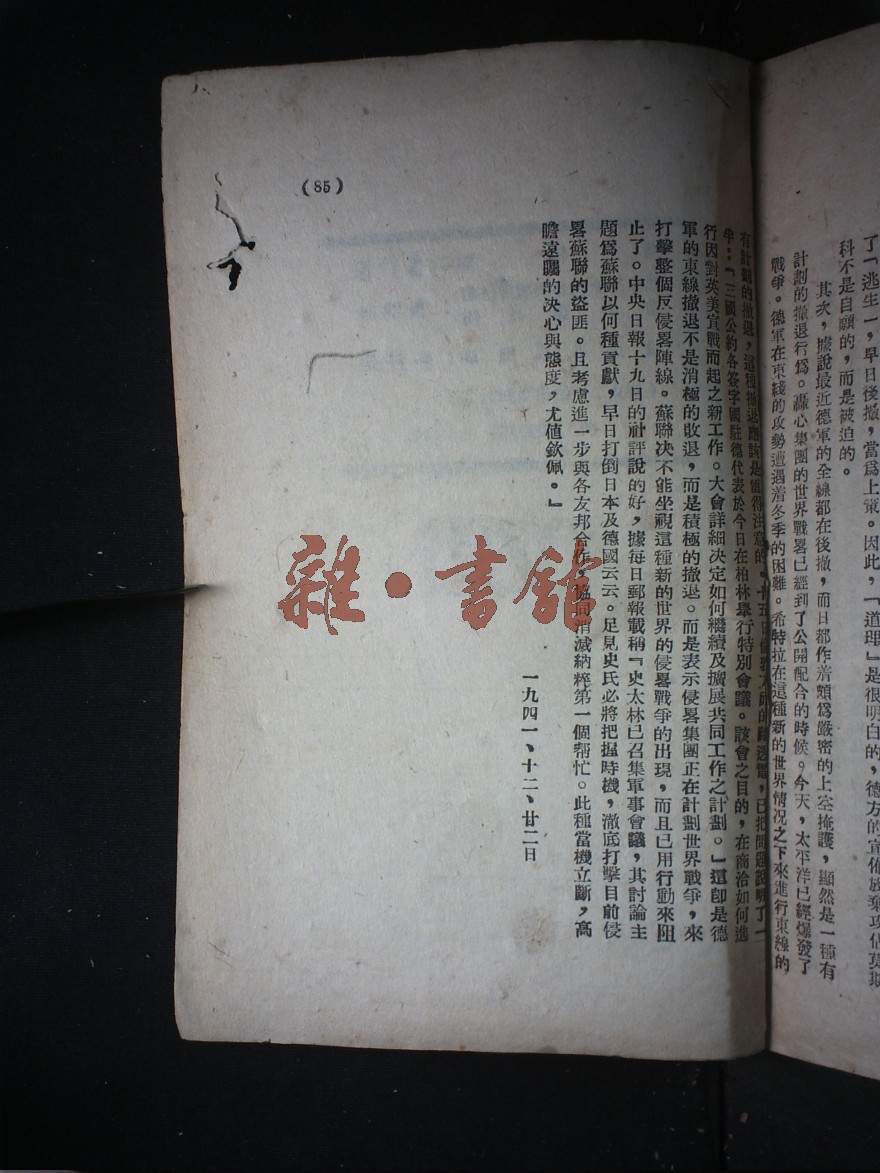 了「逃生」，早日後撤，當爲上策。因此，「道理」是很明白的，德方的宣佈放棄攻佔莫斯
科不是自願的，而是被迫的。
其次，據說最近德軍的全線都在後撤，而日都作着頗爲嚴密的上空掩護，顯然是一種有
計劃的撤退行爲。轟心集團的世界戰畧已經到了公開配合的時候。今天，太平洋已經爆發了
戰爭。德軍在東綫的攻勢遭遇着冬季的困難。希特拉在這種新的世界情況之下來進行東線的
有計劃的撤退，這種撤退應該是值得注意的。十五日
電，已把問題說明了一
半：「三國公約各簽字國駐德代表於今日在柏林舉行特別會議。該會之目的，在商洽如何進
行因對英美宣戰而起之新工作。大會詳細決定如何繼續及擴展共同工作之計劃。」這卽是德
軍的東線撤退不是消極的敗退，而是積極的撤退。而是表示侵畧集團正在計劃世界戰爭，來
打擊整個反侵畧陣線。蘇聯決不能坐視這種新的世界的侵畧戰爭的出現，而且已用行動來阻
止了。中央日報十九日的社評說的好，據每日郵報載稱『史太林已召集軍事會議，其討論主
題爲蘇聯以何種貢獻，早日打倒日本及德國云云。足見史氏必將把握時機，澈底打擊目前侵
畧蘇聯的盜匪。且考慮進一步與各友邦合作，協同消滅納粹第一個幫忙。此種當機立斷，高
瞻遠矚的决心與態度，尤值欽佩。』
一九四一、十二、廿二日
(85)
雜·書館